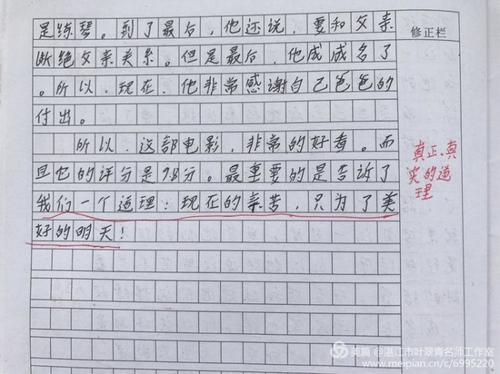 修正栏
是练琴。到了最后，他还说，要和父亲
断绝父亲关系。但是最后，他成成名了
。所以，现在，他非常感谢自己爸爸的
付出。
所以，这部电影，非常的好看。而
且它的评分是分。最重要的是告诉了
我们一个道理：现在的辛苦，只为了美
好的明天！
真正、真
实的道
理
美篇@湛江市叶翠青名师工作室
www.meipian.cn/c/6995220